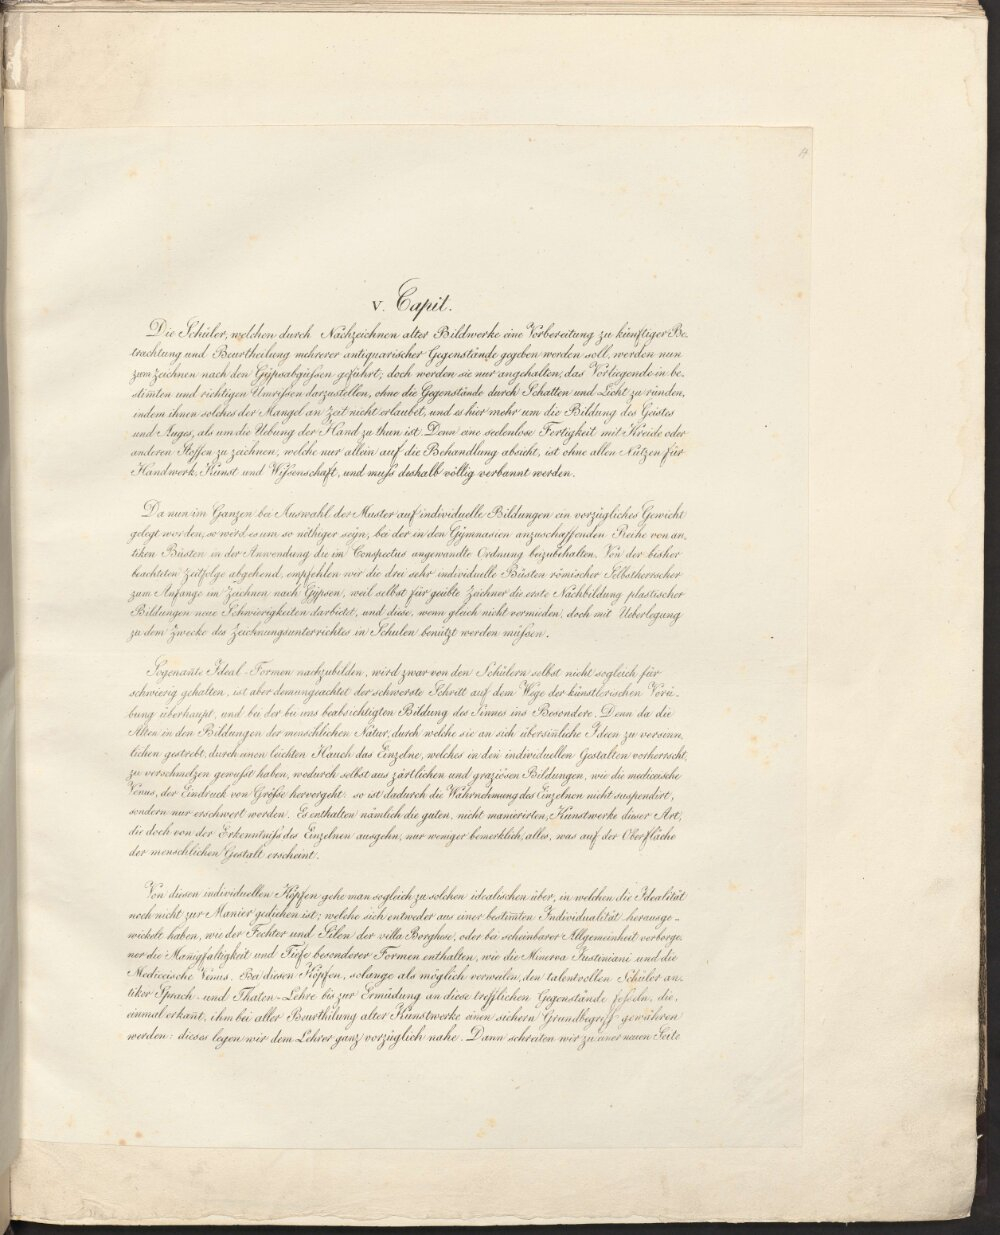 V. Capit.
Die Schüler, welchen durch Nachzeichnen alter Bildwerke eine Vorbereitung zu künftiger Be-
trachtung und Beurtheilung mehrerer antiquarischer Gegenstände gegeben werden soll, werden nun
zum Zeichnen nach den Gÿpsabgüßen geführt; doch werden sie nur angehalten, das Vorliegende in be-
stim̄ten und richtigen Umrißen darzustellen, ohne die Gegenstände durch Schatten und Licht zu ründen,
indem ihnen solches der Mangel an Zeit nicht erlaubet, und es hier mehr um die Bildung des Geistes
und Auges, als um die Uebung der Hand zu thun ist. Denn eine seelenlose Fertigkeit mit Kreide oder
anderen Stoffen zu zeichnen, welche nur allein auf die Behandlung absieht, ist ohne allen Nützen für
Handwerk, Kunst und Wißenschaft, und muß deshalb völlig verbannt werden.
Da nun im Ganzen bei Auswahl der Muster auf individuelle Bildungen ein vorzügliches Gewicht
gelegt worden, so wird es um so nöthiger seÿn, bei der in den Gÿmnasien anzuschaffenden Reihe von an-
tiken Büsten in der Anwendung die im Conspectus angewandte Ordnung beizubehalten. Von der bisher
beachteten Zeitfolge abgehend, empfehlen wir die drei sehr individuelle Büsten römischer Selbstherrscher
zum Anfange im Zeichnen nach Gÿpsen, weil selbst für geübte Zeichner die erste Nachbildung plastischer
Bildungen neue Schwierigkeiten darbietet, und diese, wenn gleich nicht vermieden, doch mit Ueberlegung
zu dem Zwecke des Zeichnungsunterrichtes in Schulen benützt werden müßen.
Sogenan̄te Ideal-Formen nachzubilden, wird zwar von den Schülern selbst nicht sogleich für
schwierig gehalten, ist aber demungeachtet der schwerste Schritt auf dem Wege der künstlerischen Vorü-
bung überhaupt, und bei der bei uns beabsichtigten Bildung des Sinnes ins Besondere. Denn da die
Alten in den Bildungen der menschlichen Natur, durch welche sie an sich übersinliche Ideen zu versinn-
lichen gestrebt, durch einen leichten Hauch das Einzelne, welches in den individuellen Gestalten vorherrscht,
zu verschmelzen gewußt haben, wodurch selbst aus zärtlichen und graziösen Bildungen, wie die mediceische
Venus, der Eindruck von Größe hervorgeht: so ist dadurch die Wahrnehmung des Einzelnen nicht suspendirt,
sondern nur erschwert worden. Es enthalten nämlich die guten, nicht manierirten, Kunstwerke dieser Art,
die doch von der Erkenntniß des Einzelnen ausgehn, nur weniger bemerklich, alles, was auf der Oberfläche
der menschlichen Gestalt erscheint.
Von diesen individuellen Köpfen gehe man sogleich zu solchen idealischen über, in welchen die Idealität
noch nicht zur Manier gediehen ist; welche sich entweder aus einer bestim̄ten Individualität herausge-
wickelt haben, wie der Fechter und Silen der villa Borghese, oder bei scheinbarer Allgemeinheit verborge-
ner die Man̄igfaltigkeit und Tiefe besonderer Formen enthalten, wie die Minerva Justiniani und die
Mediceische Venus. Bei diesen Köpfen, solange als möglich verweilen, den talentvollen Schüler an-
tiker Sprach- und Thaten-Lehre bis zur Ermüdung an diese trefflichen Gegenstände feßeln, die,
einmal erkan̄t, ihm bei aller Beurthilung alter Kunstwerke einen sichern Grundbegriff gewähren
werden: dieses legen wir dem Lehrer ganz vorzüglich nahe. Dann schreiten wir zu einer neuen Seite